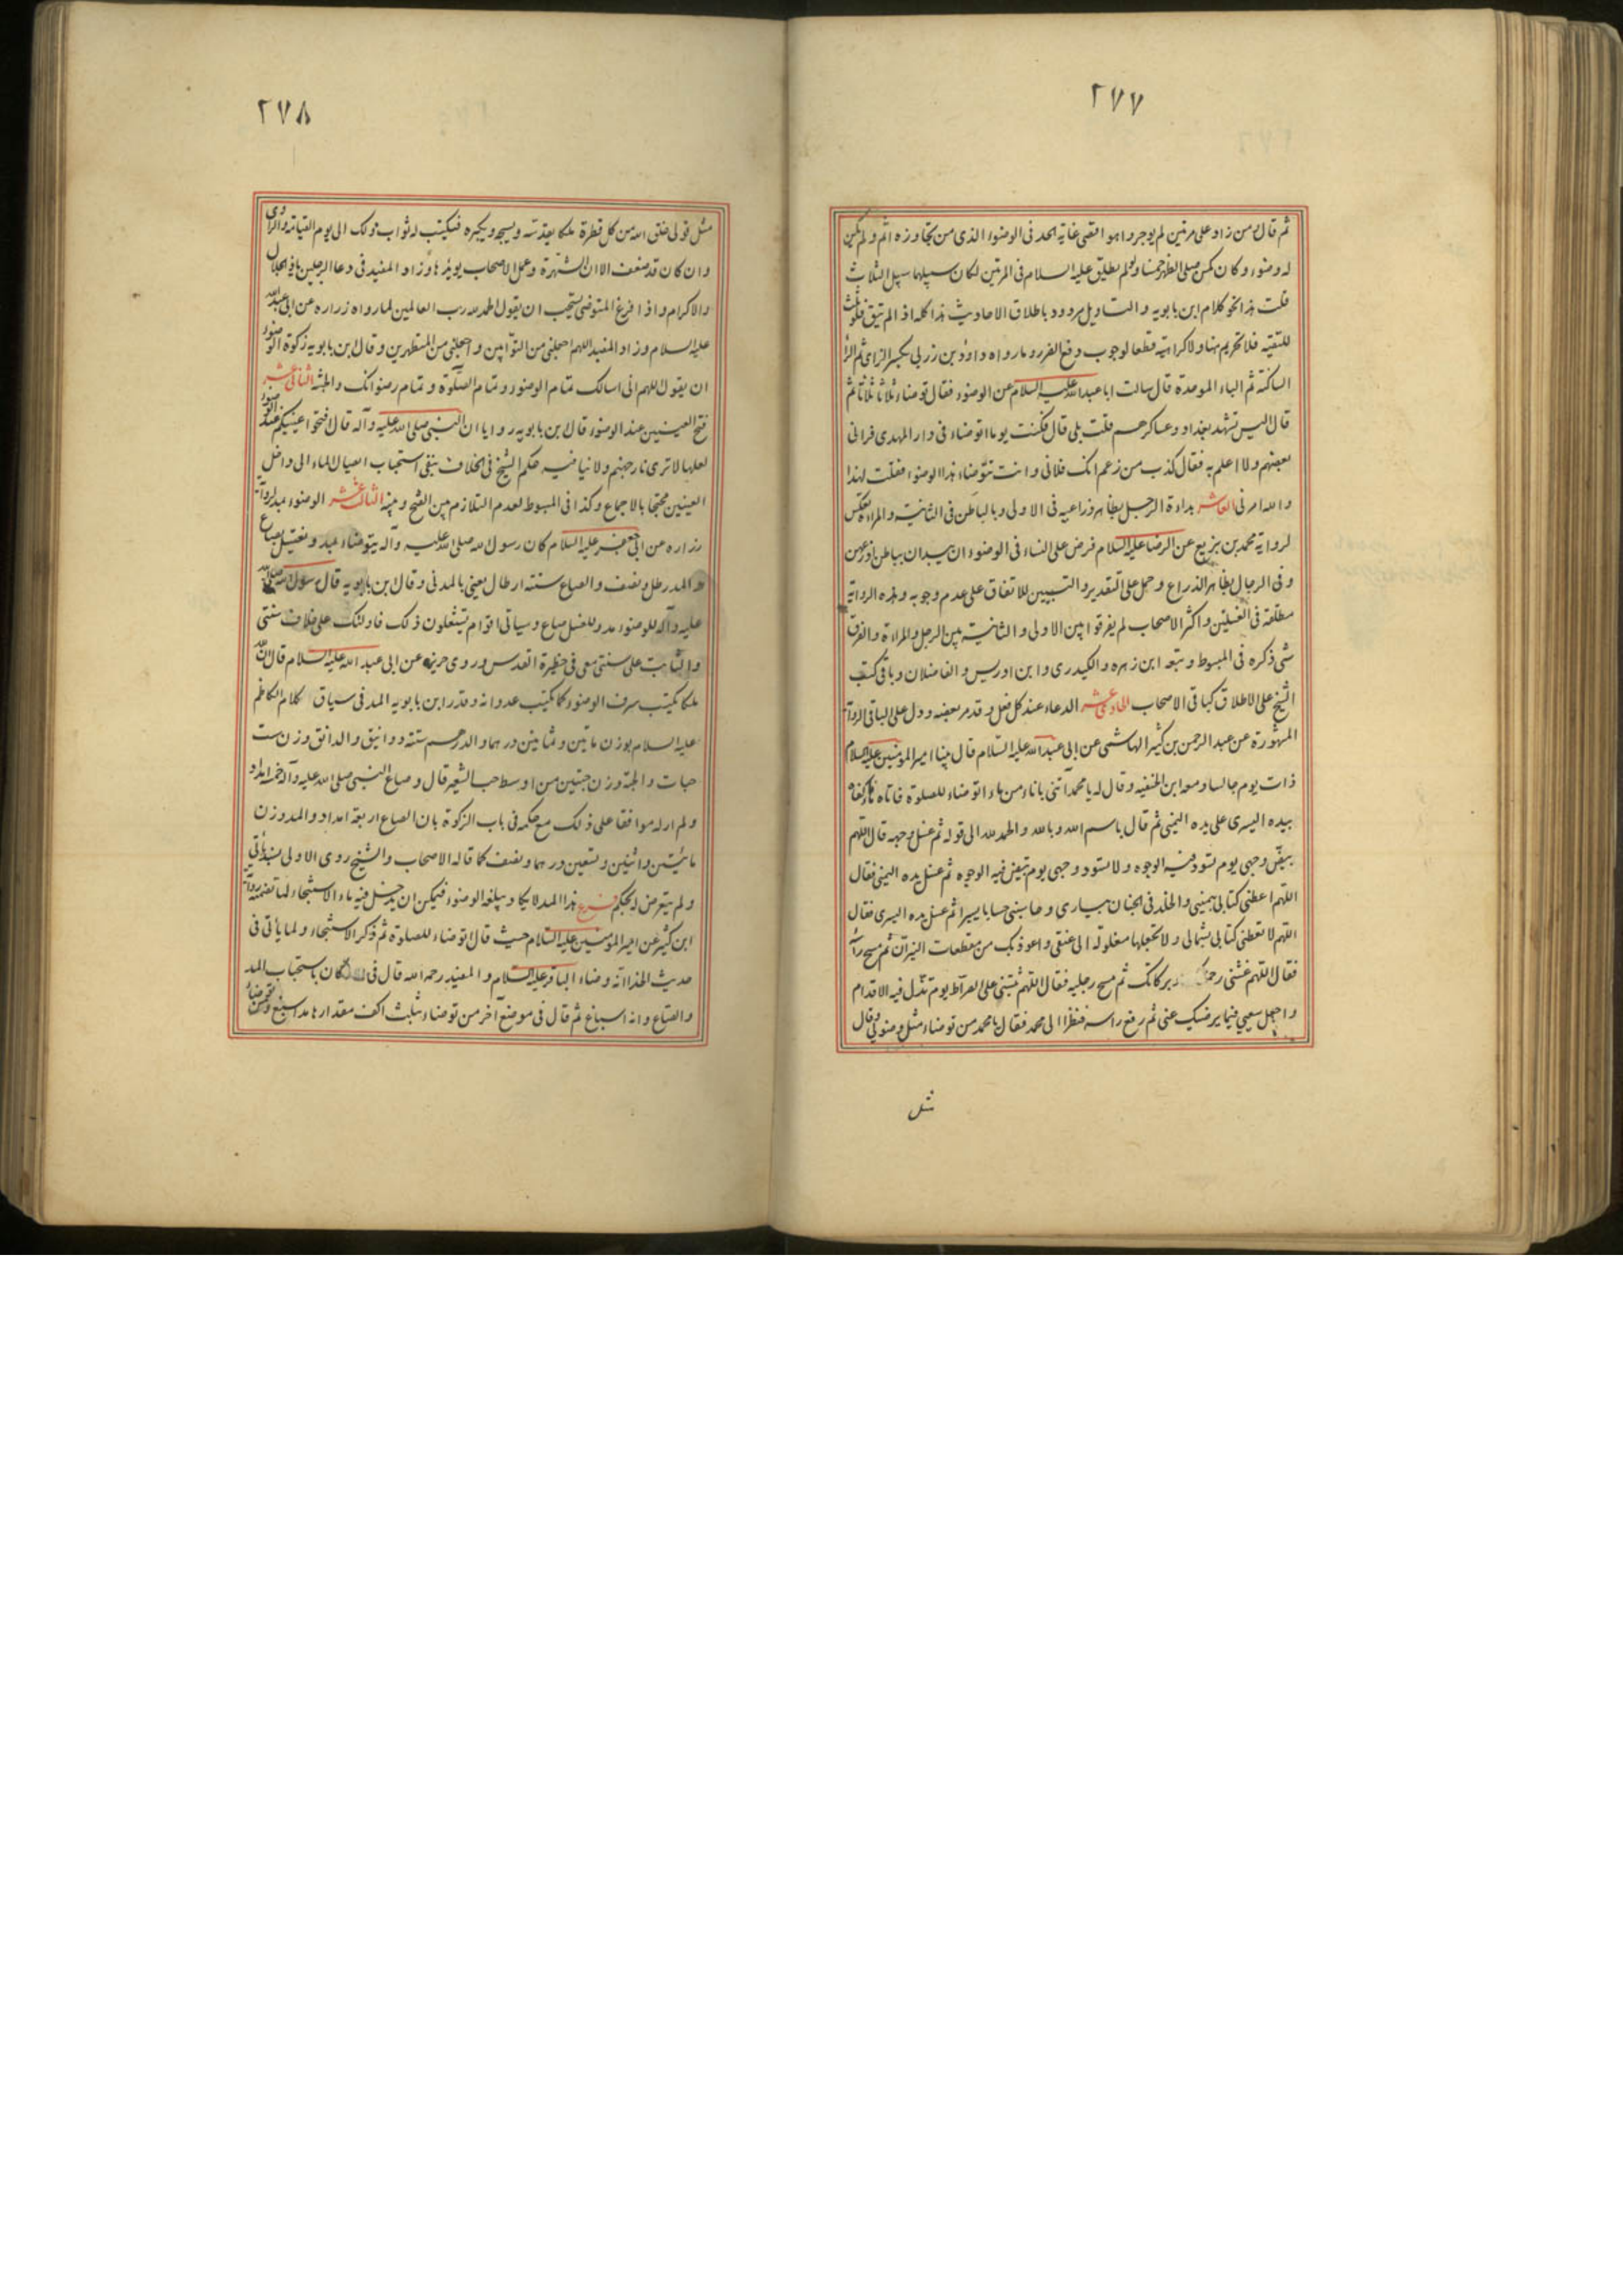 ٢٧٧
ثم قال من زاد على مرتين لم يوجر وهو اقصى غاية الحد فى الوضوء الذى من تجاوزه اثم ولم يكن
له وضوء وكان كمن صلى الظهر خمسا ولو لم يطلق عليه السلام فى المرتين لكان سبيلهما سبيل الثلاث
قلت هذا نحو كلام ابن بابويه والتاويل مردود باطلاق الاحاديث هذا كله اذا لم يتق فلو ثلث
للتقيه فلا تحريم هنا ولا كراهية قطعا لوجوب دفع الضرر و ما رواه داود بن زربى بكسر الزاى ثم الراء
الساكنة ثم الباء الموحدة قال سالت ابا عبد الله عليه السلام عن الوضوء فقال توضاء ثلاثا ثلاثا ثم
قال اليس تشهد بغداد وعساكرهم قلت بلى قال فكنت يوما اتوضاء فى دار المهدى فرانى
بعضهم ولا اعلم به فقال كذب من زعم انك فلانى وانت تتوضاء هذا الوضوء فقلت لهذا
والله امرنى العاشر بداءة الرجل بظاهر ذراعيه فى الاولى وبالباطن فى الثانية والمراءة بعكس
لرواية محمد بن بزيع عن الرضا عليه السلام فرض على النساء فى الوضوء ان يبدان بباطن اذرعهن
وفى الرجال بظاهر الذراع وحمل على التقدير والتبيين للاتفاق على عدم وجوبه وهذه الرواية
مطلقة فى الغسلين واكثر الاصحاب لم يفرقوا بين الاولى والثانية بين الرجل والمراءة والفرق
شى ذكره فى المبسوط وتبعه ابن زهره والكيدرى وابن ادريس والفاضلان وباقى كتب
الشيخ على الاطلاق كباقى الاصحاب الحادى عشر الدعاء عند كل فعل وقد مر بعضه ودل على الباقى الرواية
المشهورة عن عبد الرحمن بن كثير الهاشمى عن ابى عبد الله عليه السلام قال بينا امير المومنين عليه السلام
ذات يوم جالسا ومعه ابن الحنفيه وقال له يا محمد آتنى باناء من ماء اتوضاء للصلوة فاتاه فاكفاه
بيده اليسرى على يده اليمنى ثم قال باسم الله وبالله والحمد لله الى قوله ثم غسل وجهه قال اللهم
بيض وجهى يوم تسود فيه الوجوه ولا تسود وجهى يوم تبيض فيه الوجوه ثم غسل يده اليمنى فقال
اللهم اعطنى كتابى بيمينى والخلد فى الجنان بيسارى وحاسبنى حسابا يسيرا ثم غسل يده اليسرى فقال
اللهم لا تعطنى كتابى بشمالى ولا تجعلها مغلولة الى عنقى واعوذ بك من مقطعات النيران ثم مسح راسه
فقال اللهم غشنى رحمتك وبركاتك ثم مسح رجليه فقال اللهم ثبتنى على الصراط يوم تزل فيه الاقدام
واجعل سعيى فيما يرضيك عنى ثم رفع راسه فنظر الى محمد فقال يا محمد من توضاء مثل وضوئى وقال
مثل
٢٧٨
مثل قولى خلق الله من كل قطرة ملكا يقدسه ويسبحه ويكبره فيكتب له ثواب ذلك الى يوم القيامة والراوى
وان كان قد ضعف الا ان الشهرة وعمل الاصحاب يويدها وزاد المفيد فى دعاء الرجلين يا ذا الجلال
والاكرام واذا فرغ المتوضى يستحب ان يقول الحمد لله رب العالمين لما رواه زراره عن ابى عبد الله
عليه السلام وزاد المفيد اللهم اجعلنى من التوابين واجعلنى من المتطهرين وقال ابن بابويه زكوة الوضوء
ان يقول اللهم انى اسالك تمام الوضوء وتمام الصلوة وتمام رضوانك والجنة الثانى عشر
فتح العينين عند الوضوء قال ابن بابويه روايا ان النبى صلى الله عليه وآله قال افتحوا عينيكم عند الوضوء
لعلها لا ترى نار جهنم ولا ينافيه حكم الشيخ فى الخلاف بنفى استحباب ايصال الماء الى داخل
العينين محتجا بالاجماع وكذا فى المبسوط لعدم التلازم بين الفتح وبينه الثالث عشر الوضوء بمد لرواية
زراره عن ابى جعفر عليه السلام كان رسول الله صلى الله عليه وآله يتوضاء بمد ويغتسل بصاع
والمد رطل ونصف والصاع ستة ارطال يعنى بالمدنى وقال ابن بابويه قال رسول الله صلى الله
عليه وآله للوضوء مد وللغسل صاع وسياتى اقوام يستقلون ذلك فاولئك على خلاف سنتى
والثابت على سنتى معى فى حظيرة القدس وروى حريز عن ابى عبد الله عليه السلام قال ان لله
ملكا يكتب سرف الوضوء كما يكتب عدوانه وقدر ابن بابويه المد فى سياق كلام الكاظم
عليه السلام بوزن مائتين وثمانين درهما والدرهم ستة دوانيق والدانق وزن ست
حبات والحبة وزن حبتين من اوسط حب الشعير قال وصاع النبى صلى الله عليه وآله خمسة امداد
ولم ار له موافقا على ذلك مع حكمه فى باب الزكوة بان الصاع اربعة امداد والمد وزن
مائتين واثنين وتسعين درهما ونصف كما قاله الاصحاب والشيخ روى الاولى بسند ياتى
ولم يتعرض لحكم فرع هذا المد لا يكاد يبلغه الوضوء فيمكن ان يدخل فيه ماء الاستنجاء لما تضمنته رواية
ابن كثير عن امير المومنين عليه السلام حيث قال اتوضاء للصلوة ثم ذكر الاستنجاء ولما ياتى فى
حديث الحذا انه وضاء الباقر عليه السلام والمفيد رحمه الله قال فى الاركان باستحباب المد
والصاع وانه اسباغ ثم قال فى موضع آخر من توضاء بثلث اكف مقدارها مد اسبغ ومن توضاء